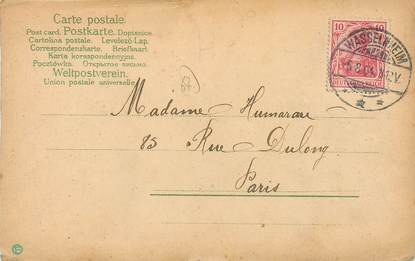 Carte postale.
Post card. Postkarte. Dopisnice.
Cartolina postale. Levelező-Lap.
Correspondenzkarte. Briefkaart.
Karta korespondencyjna.
Pocztówka. Открытое письмо.
Weltpostverein.
Union postale universelle.
10 10
WASSELNHEIM
DEUTSCHES REICH
Madame Humarare
85 Rue Dulong
Paris